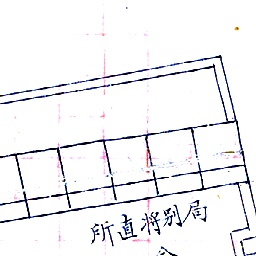 所直将别局